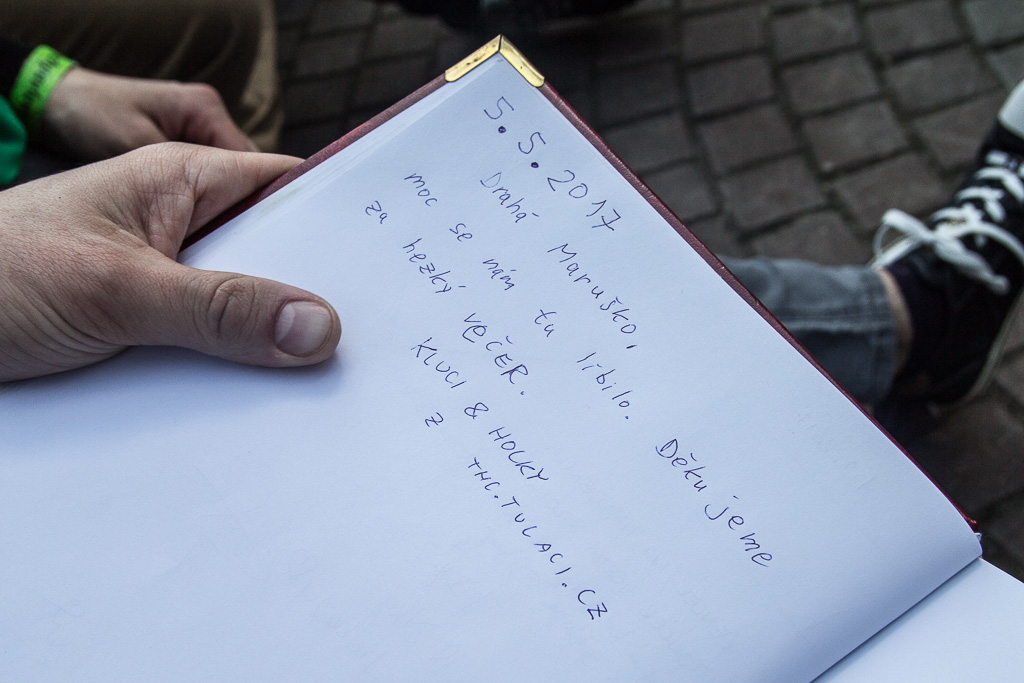 5.5.2017
Drahá Maruško,
moc se nám tu líbilo. Děkujeme
za hezký VEČER.
KLUCI & HOLKY
z THC.TULACI.CZ